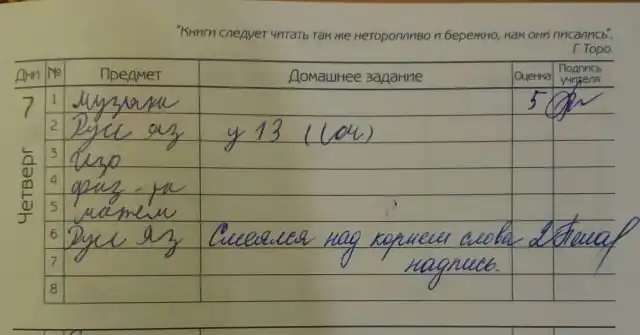 "Книги следует читать так же неторопливо и бережно, как они писались",
Г. Торо.
Дни № Предмет Домашнее задание Оценка Подпись учителя
7 Четверг
1 музыка 5
2 Русс яз у 13 (
3 Изо
4 физ-ра
5 матем
6 Русс яз Смеялся над корнем слова 2
7 надпись.
8